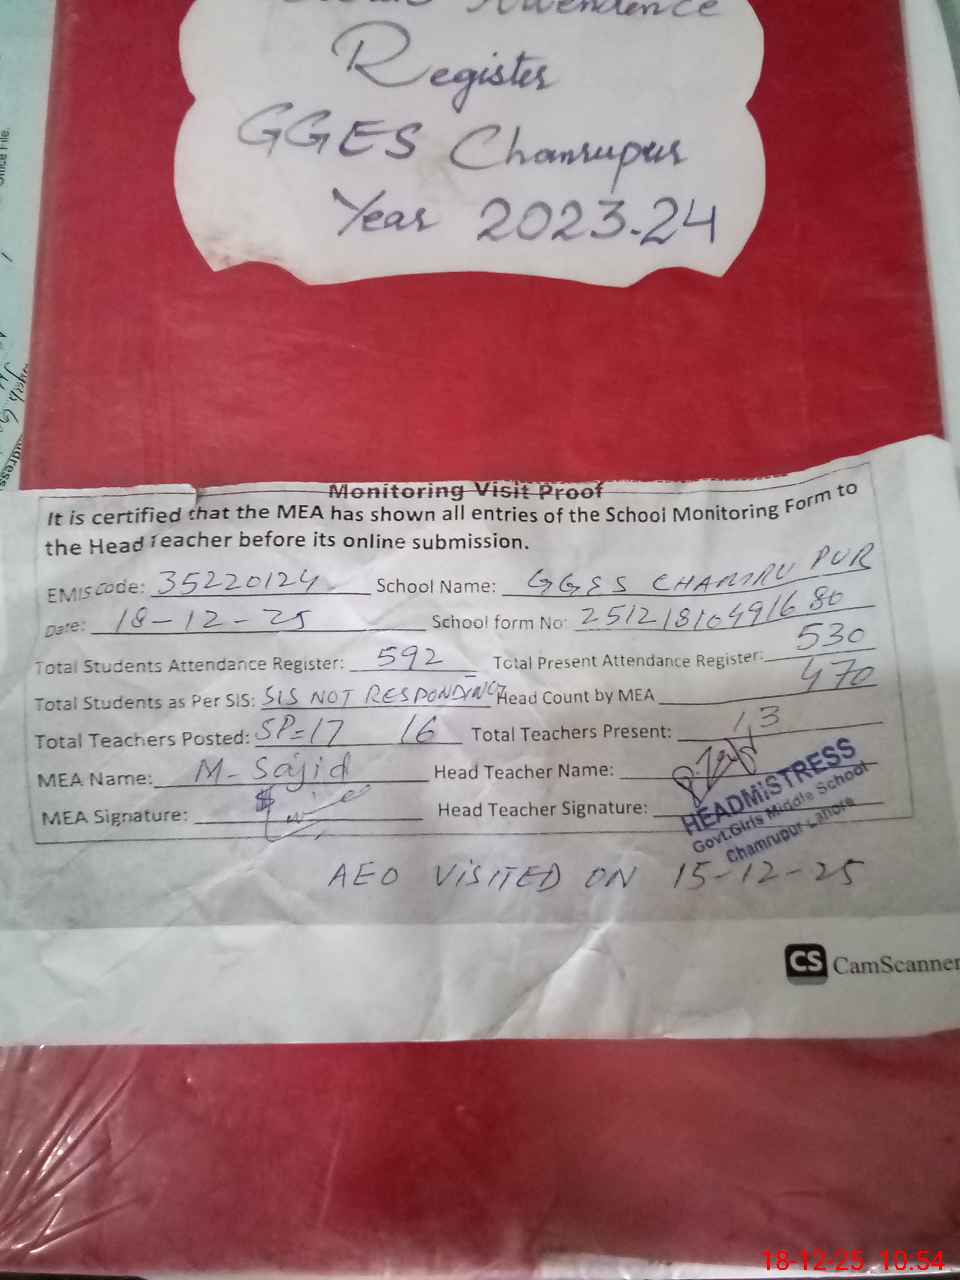 Attendence
Register
GGES Chamrupur
Year 2023-24
Office File.
Monitoring Visit Proof
It is certified that the MEA has shown all entries of the School Monitoring Form to
the Head Teacher before its online submission.
EMIS Code: 35220124 School Name: GGES CHAMRU PUR
Date: 18-12-25 School form No: 25121810491680
Total Students Attendance Register: 592 Total Present Attendance Register: 530
Total Students as Per SIS: SIS NOT RESPONDING Head Count by MEA 470
Total Teachers Posted: SP=17 16 Total Teachers Present: 13
MEA Name: M-Sajid Head Teacher Name:
MEA Signature: Head Teacher Signature:
HEADMISTRESS
Govt.Girls Middle School
Chamrupur Lahore
AEO VISITED ON 15-12-25
CS CamScanner
18-12-25 10:54